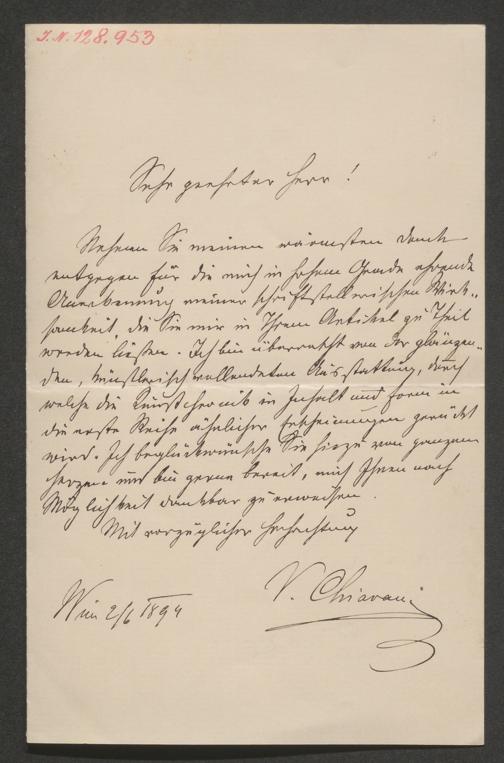 I.N. 128.953
Sehr geehrter Herr!
Nehmen Sie meinen wärmsten Dank
entgegen für die mich in hohem Grade ehrende
Anerkennung meiner schriftstellerischen Wirk-
samkeit, die Sie mir in Ihrem Artikel zu Theil
werden ließen. Ich bin überrascht von der glänzen-
den, künstlerisch vollendeten Ausstattung, durch
welche die Kunstchronik in Inhalt und Form in
die erste Reihe ähnlicher Erscheinungen gerückt
wird. Ich beglückwünsche Sie hiezu von ganzem
Herzen und bin gerne bereit, mich Ihnen nach
Möglichkeit dankbar zu erweisen.
Mit vorzüglicher Hochachtung
V. Chiavacci
Wien 2/6 1894